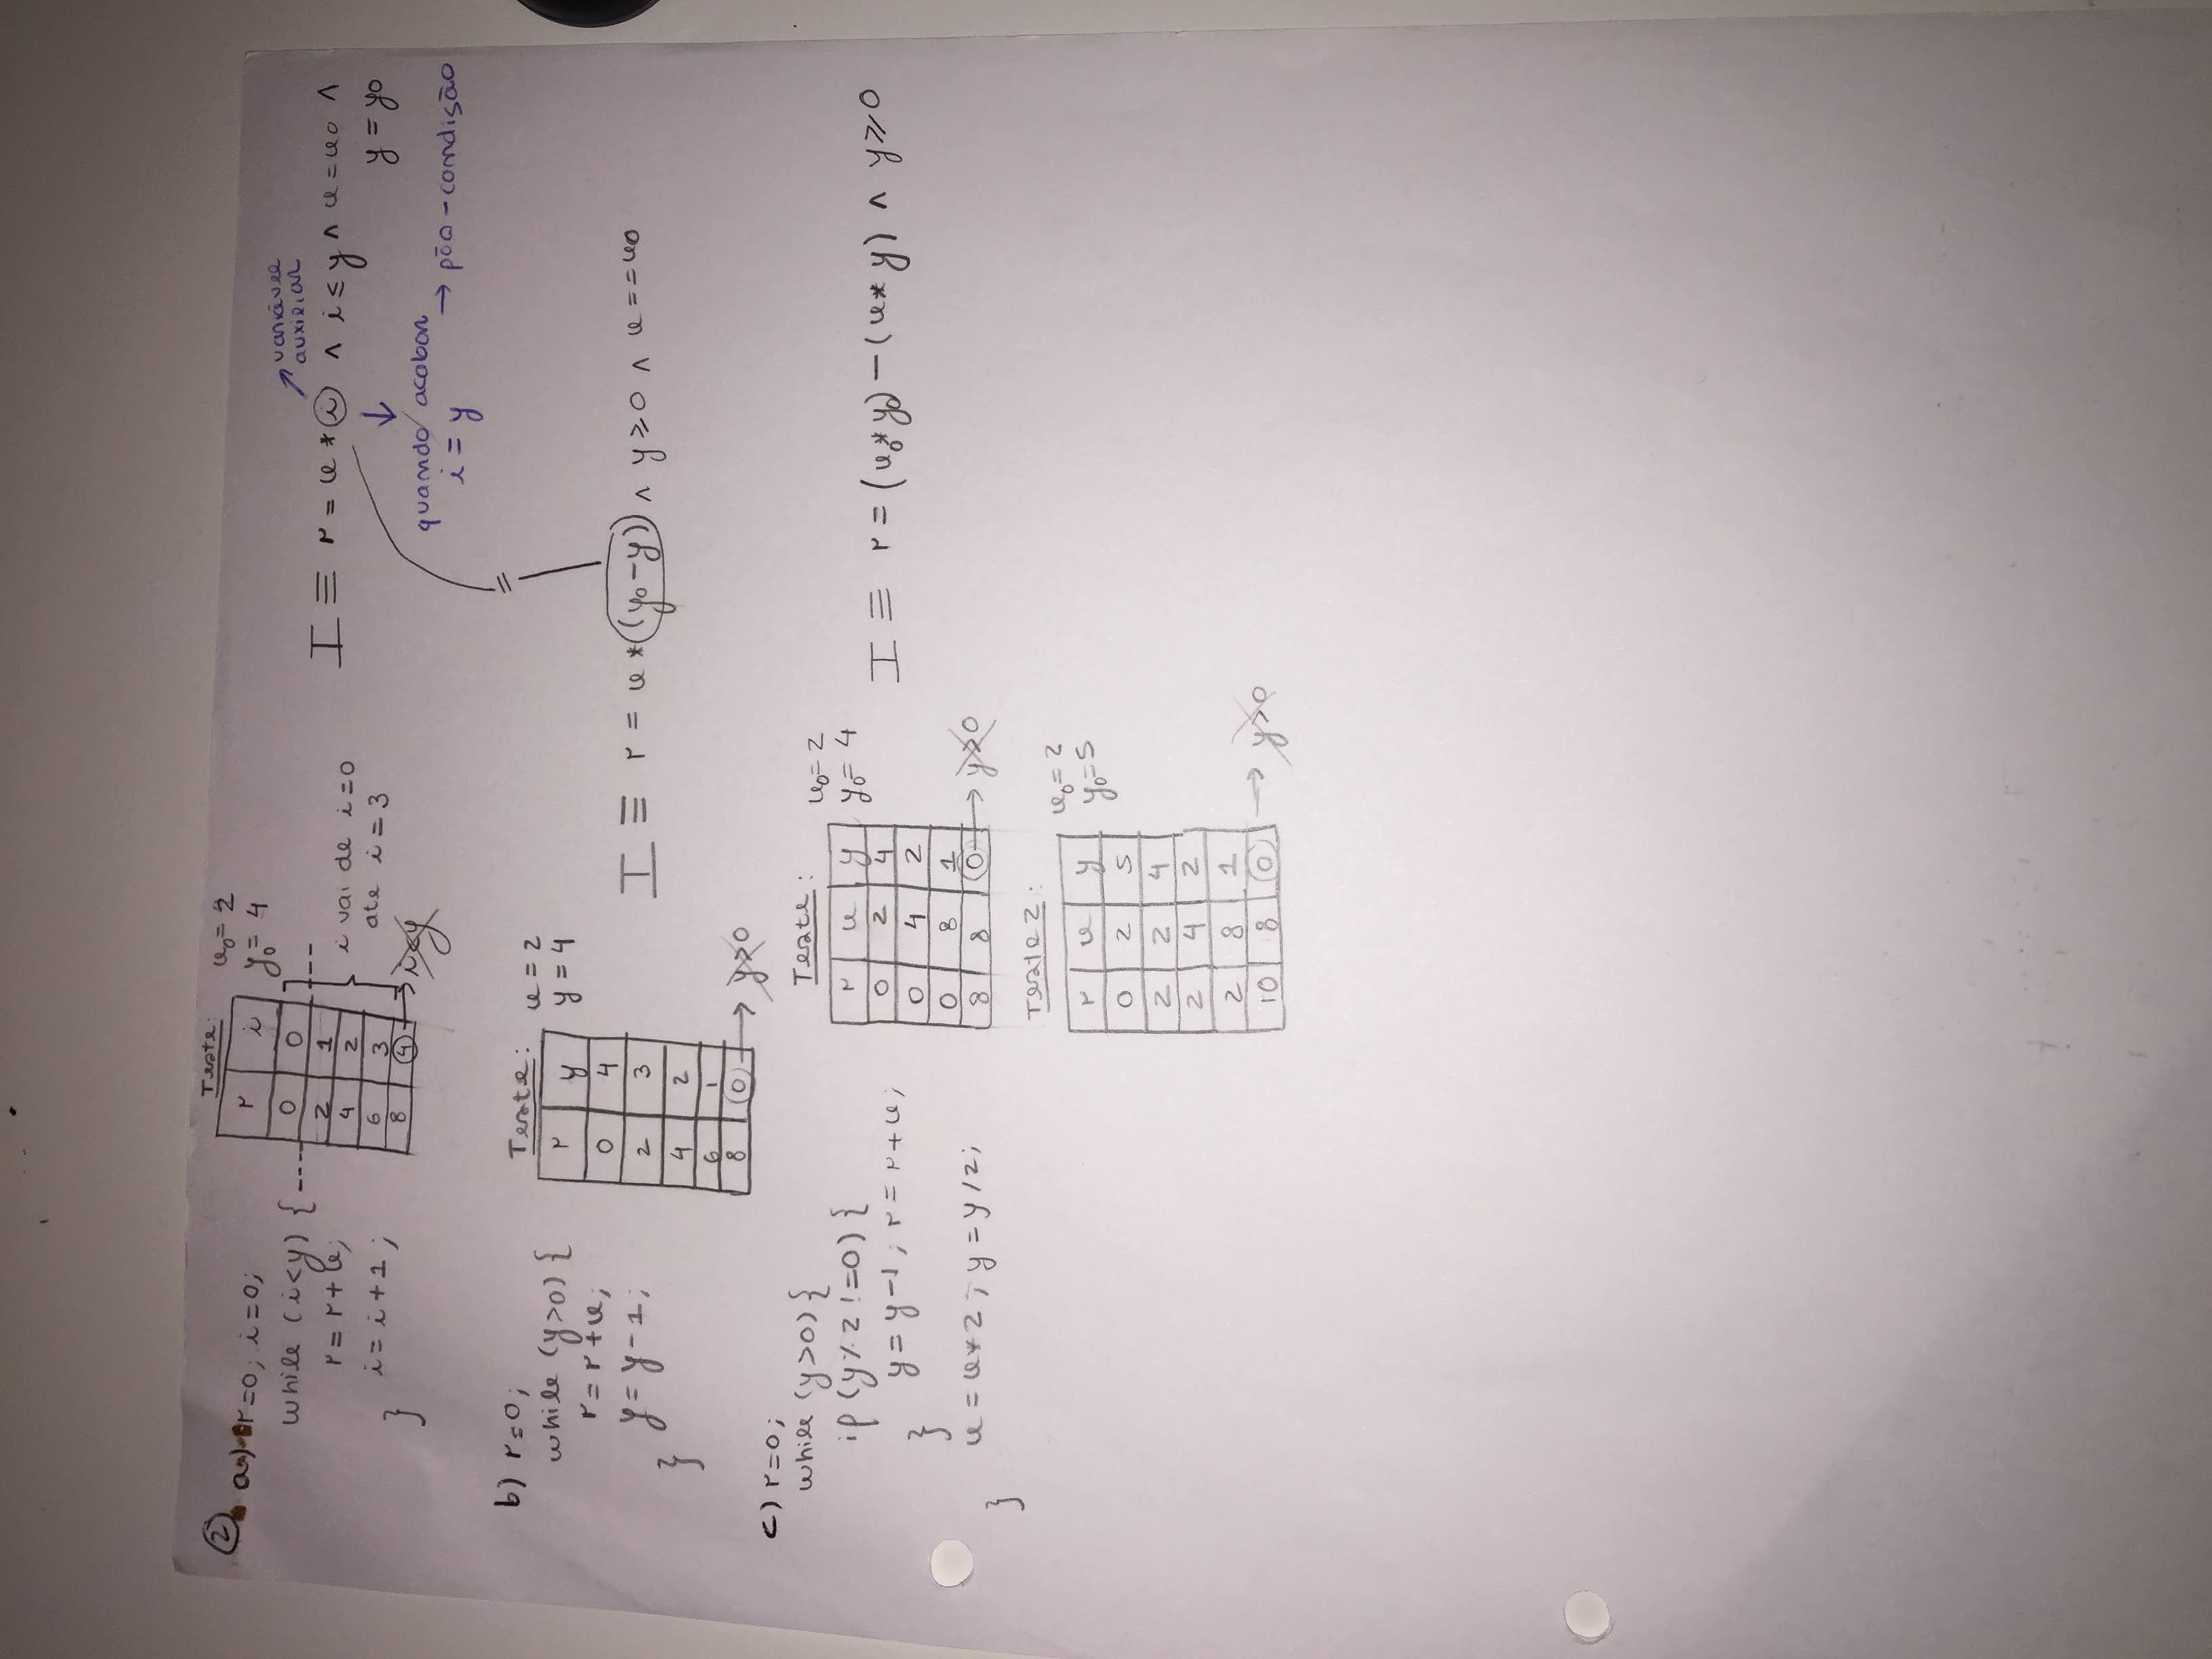 ② a) r=0; i=0;
while (i<y) {
r = r+x;
i = i+1;
}
Teste:
x₀=2
y₀=4
r i
0 0
2 1
4 2
6 3
8 4
i<y
i vai de i=0
ate i=3
I ≡ r = x * i ∧ i ≤ y ∧ x = x₀ ∧
y = y₀
↗ variável
auxiliar
↓
quando acabar → pós-condição
i = y
b) r=0;
while (y>0) {
r = r+x;
y = y-1;
}
Teste:
x=2
y=4
r y
0 4
2 3
4 2
6 1
8 0 → y>0
I ≡ r = x * (y₀-y) ∧ y ≥ 0 ∧ x == x₀
=
c) r=0;
while (y>0) {
if (y % 2 != 0) {
y = y-1; r = r+x;
}
x = x*2; y = y/2;
}
Teste:
x₀=2
y₀=4
r x y
0 2 4
0 4 2
0 8 1
8 8 0 → y>0
I ≡ r = (x₀*y₀) - (x*y) ∧ y ≥ 0
Teste 2:
x₀=2
y₀=5
r x y
0 2 5
2 2 4
2 4 2
2 8 1
10 8 0 → y>0